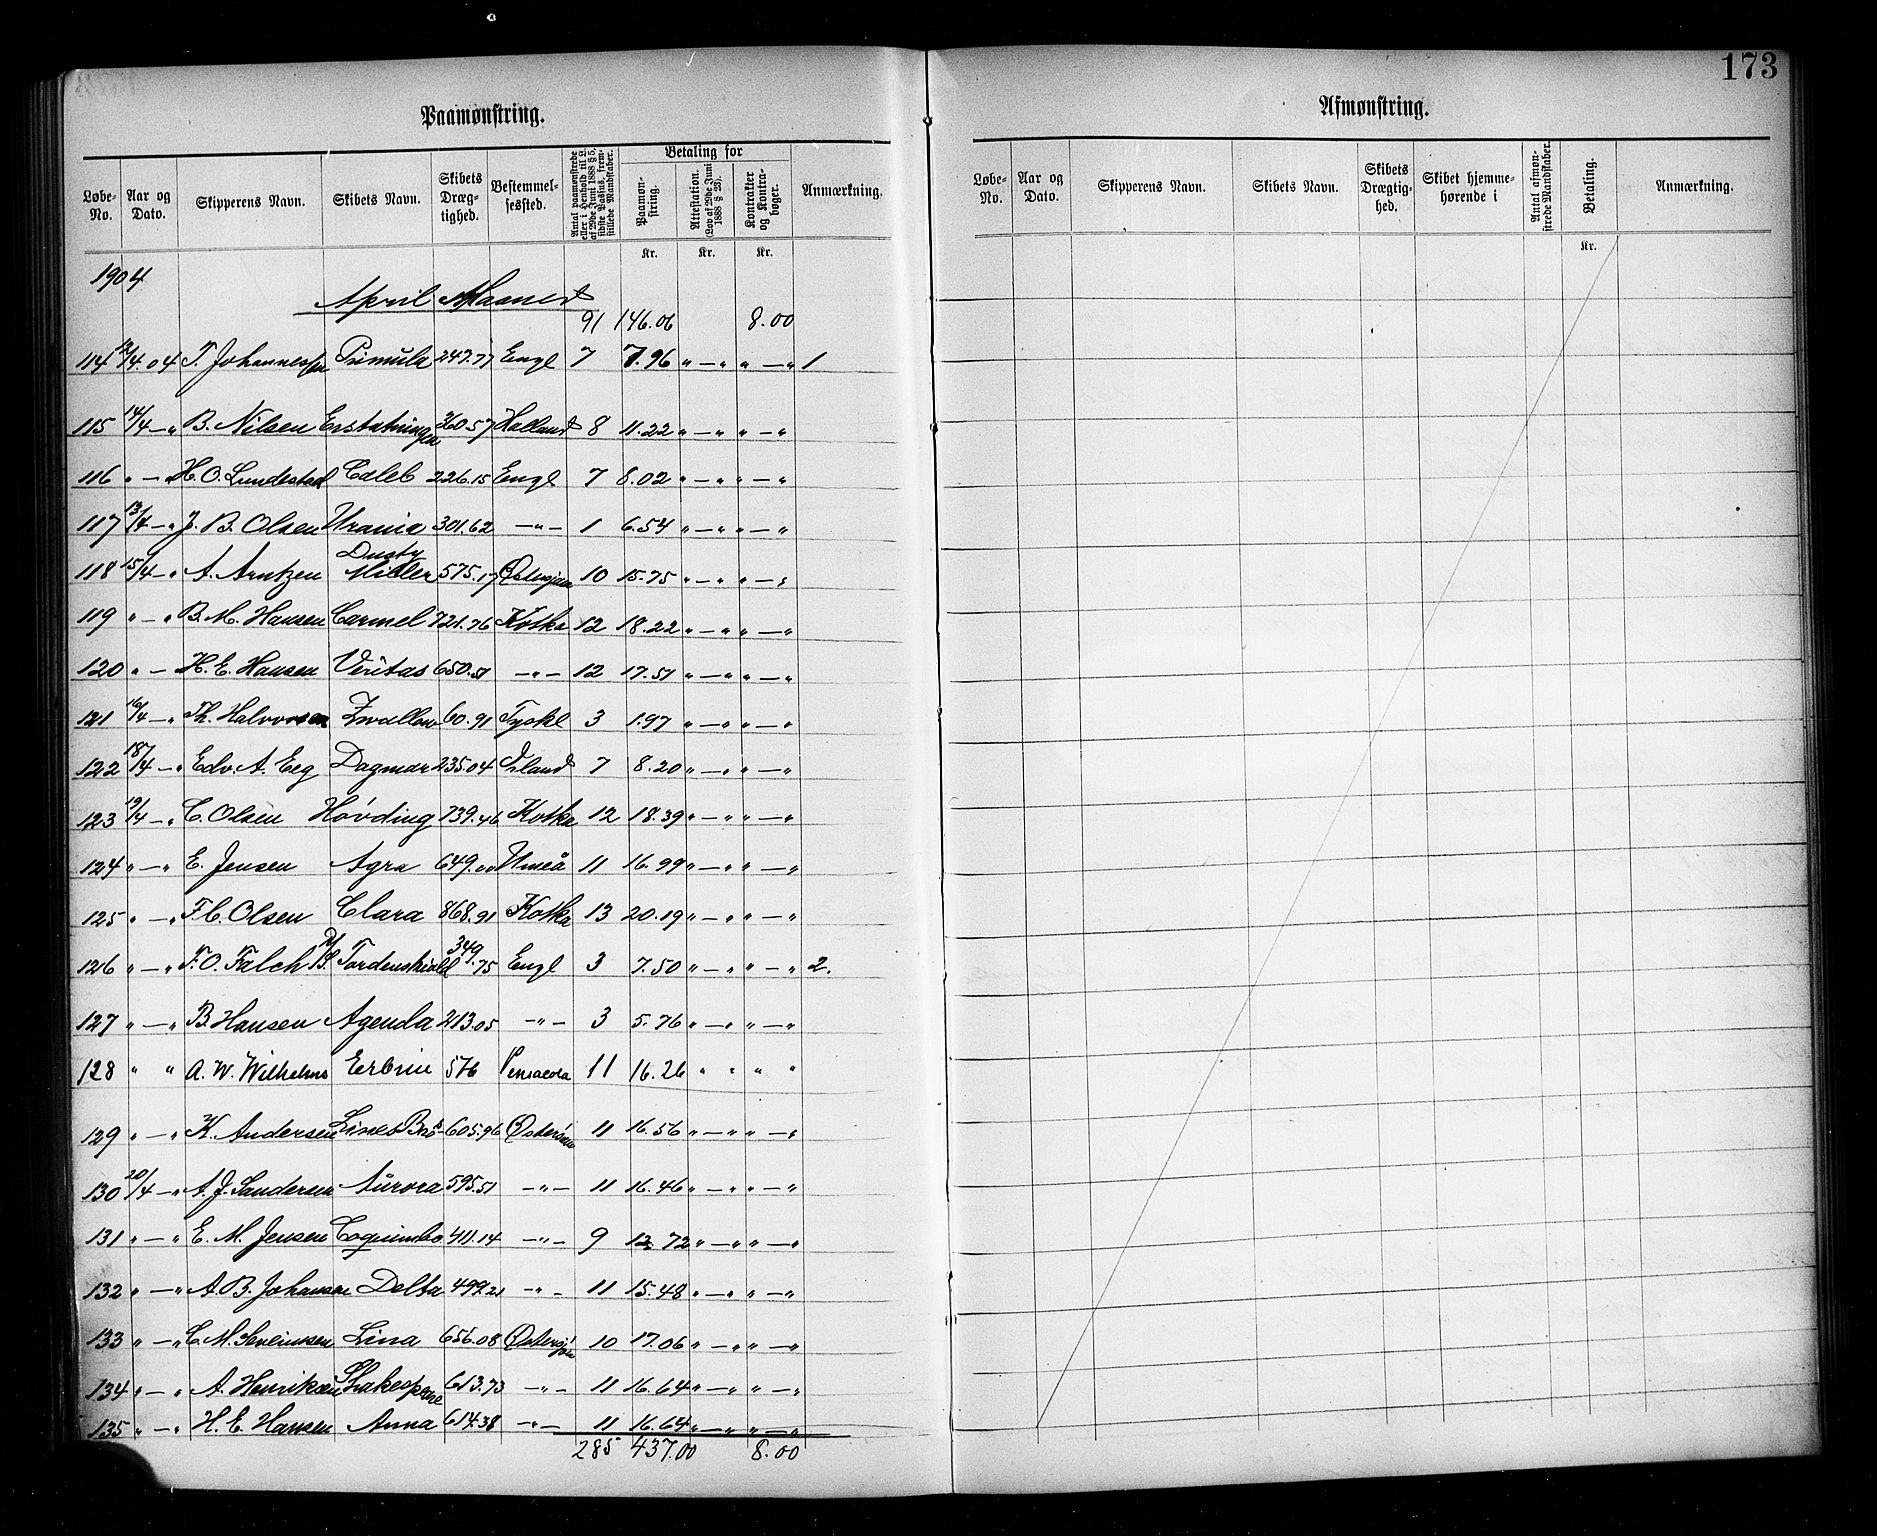 173
Paamønstring.
Løbe-No. Aar og Dato. Skipperens Navn. Skibets Navn. Skibets Dræg-tighed. Bestemmel-sessted. Antal paamønstrede eller i Henhold til L. af 29de Juni 1888 § 5, sidste Passus, frem-stillede Mandskaber. Betaling for Paamøn-string. Attestation. (Lov af 29de Juni 1888 § 23). Kontrakter og Kontra-bøger. Anmærkning.
Kr. Kr. Kr.
1904
April Maaned
91 146.06 8.00
114 12/4.04 T. Johannessen Primula 247.77 Engl 7 7.96 „ — „ „ — „ 1
115 14/4 — „ B. Nilsen Erstatningen 360.57 Holland 8 11.22 „ — „ „ — „
116 „ — „ H. O. Lundestad Caleb 226.15 Engl 7 8.02 „ — „ „ — „
117 13/4 — „ J. B. Olsen Urania 301.62 — „ — 1 6.54 „ — „ „ — „
118 15/4 — „ A. Arntzen Dusty Miller 575.17 Østersjøen 10 15.75 „ — „ „ — „
119 „ — „ B. M. Hansen Carmel 721.76 Kotka 12 18.22 „ — „ „ — „
120 „ — H. E. Hansen Veritas 650.51 — „ — 12 17.51 „ — „ „ — „
121 16/4 — „ Th. Halvorsen Svallow 60.91 Tyskl 3 1.97 „ — „ „ — „
122 18/4 — „ Edv. A. Eeg Dagmar 235.04 Island 7 8.20 „ — „ „ — „
123 19/4 — „ C. Olsen Høvding 739.46 Kotka 12 18.39 „ — „ „ — „
124 „ — „ E. Jensen Agra 649.00 Umeå 11 16.99 „ — „ „ — „
125 „ — „ F. C. Olsen Clara 868.91 Kotka 13 20.19 „ — „ „ — „
126 „ — „ F. O. Falch D/S. Tordenskiold 349.75 Engl 3 7.50 „ — „ „ — „ 2.
127 „ — „ B. Hansen Agenda 213.05 — „ — 3 5.76 „ — „ „ — „
128 „ „ A. W. Wilhelms 576 Pensacola 11 16.26 „ „ „ „
129 „ — „ K. Andersen 605.96 Østersøen 11 16.56 „ — „ „ — „
130 20/4 — „ A. J. Sandersen Aurora 595.51 — „ — 11 16.46 „ — „ „ — „
131 „ — „ E. M. Jensen Coquimbo 411.14 — „ — 9 12.72 „ — „ „ — „
132 „ — „ A. B. Johansen Delta 499.21 — „ — 11 15.48 „ — „ „ — „
133 „ — „ C. M. Severinsen Lina 656.08 Østersjøen 10 17.06 „ — „ „ — „
134 „ — „ A. Henriksen Shakespeare 613.73 — „ — 11 16.64 „ — „ „ — „
135 „ — „ H. E. Hansen Anna 614.38 — „ — 11 16.64 „ — „ „ — „
285 437.00 8.00
Afmønstring.
Løbe-No. Aar og Dato. Skipperens Navn. Skibets Navn. Skibets Drægtig-hed. Skibet hjemme-hørende i Antal afmøn-strede Mandskaber. Betaling. Anmærkning.
Kr.